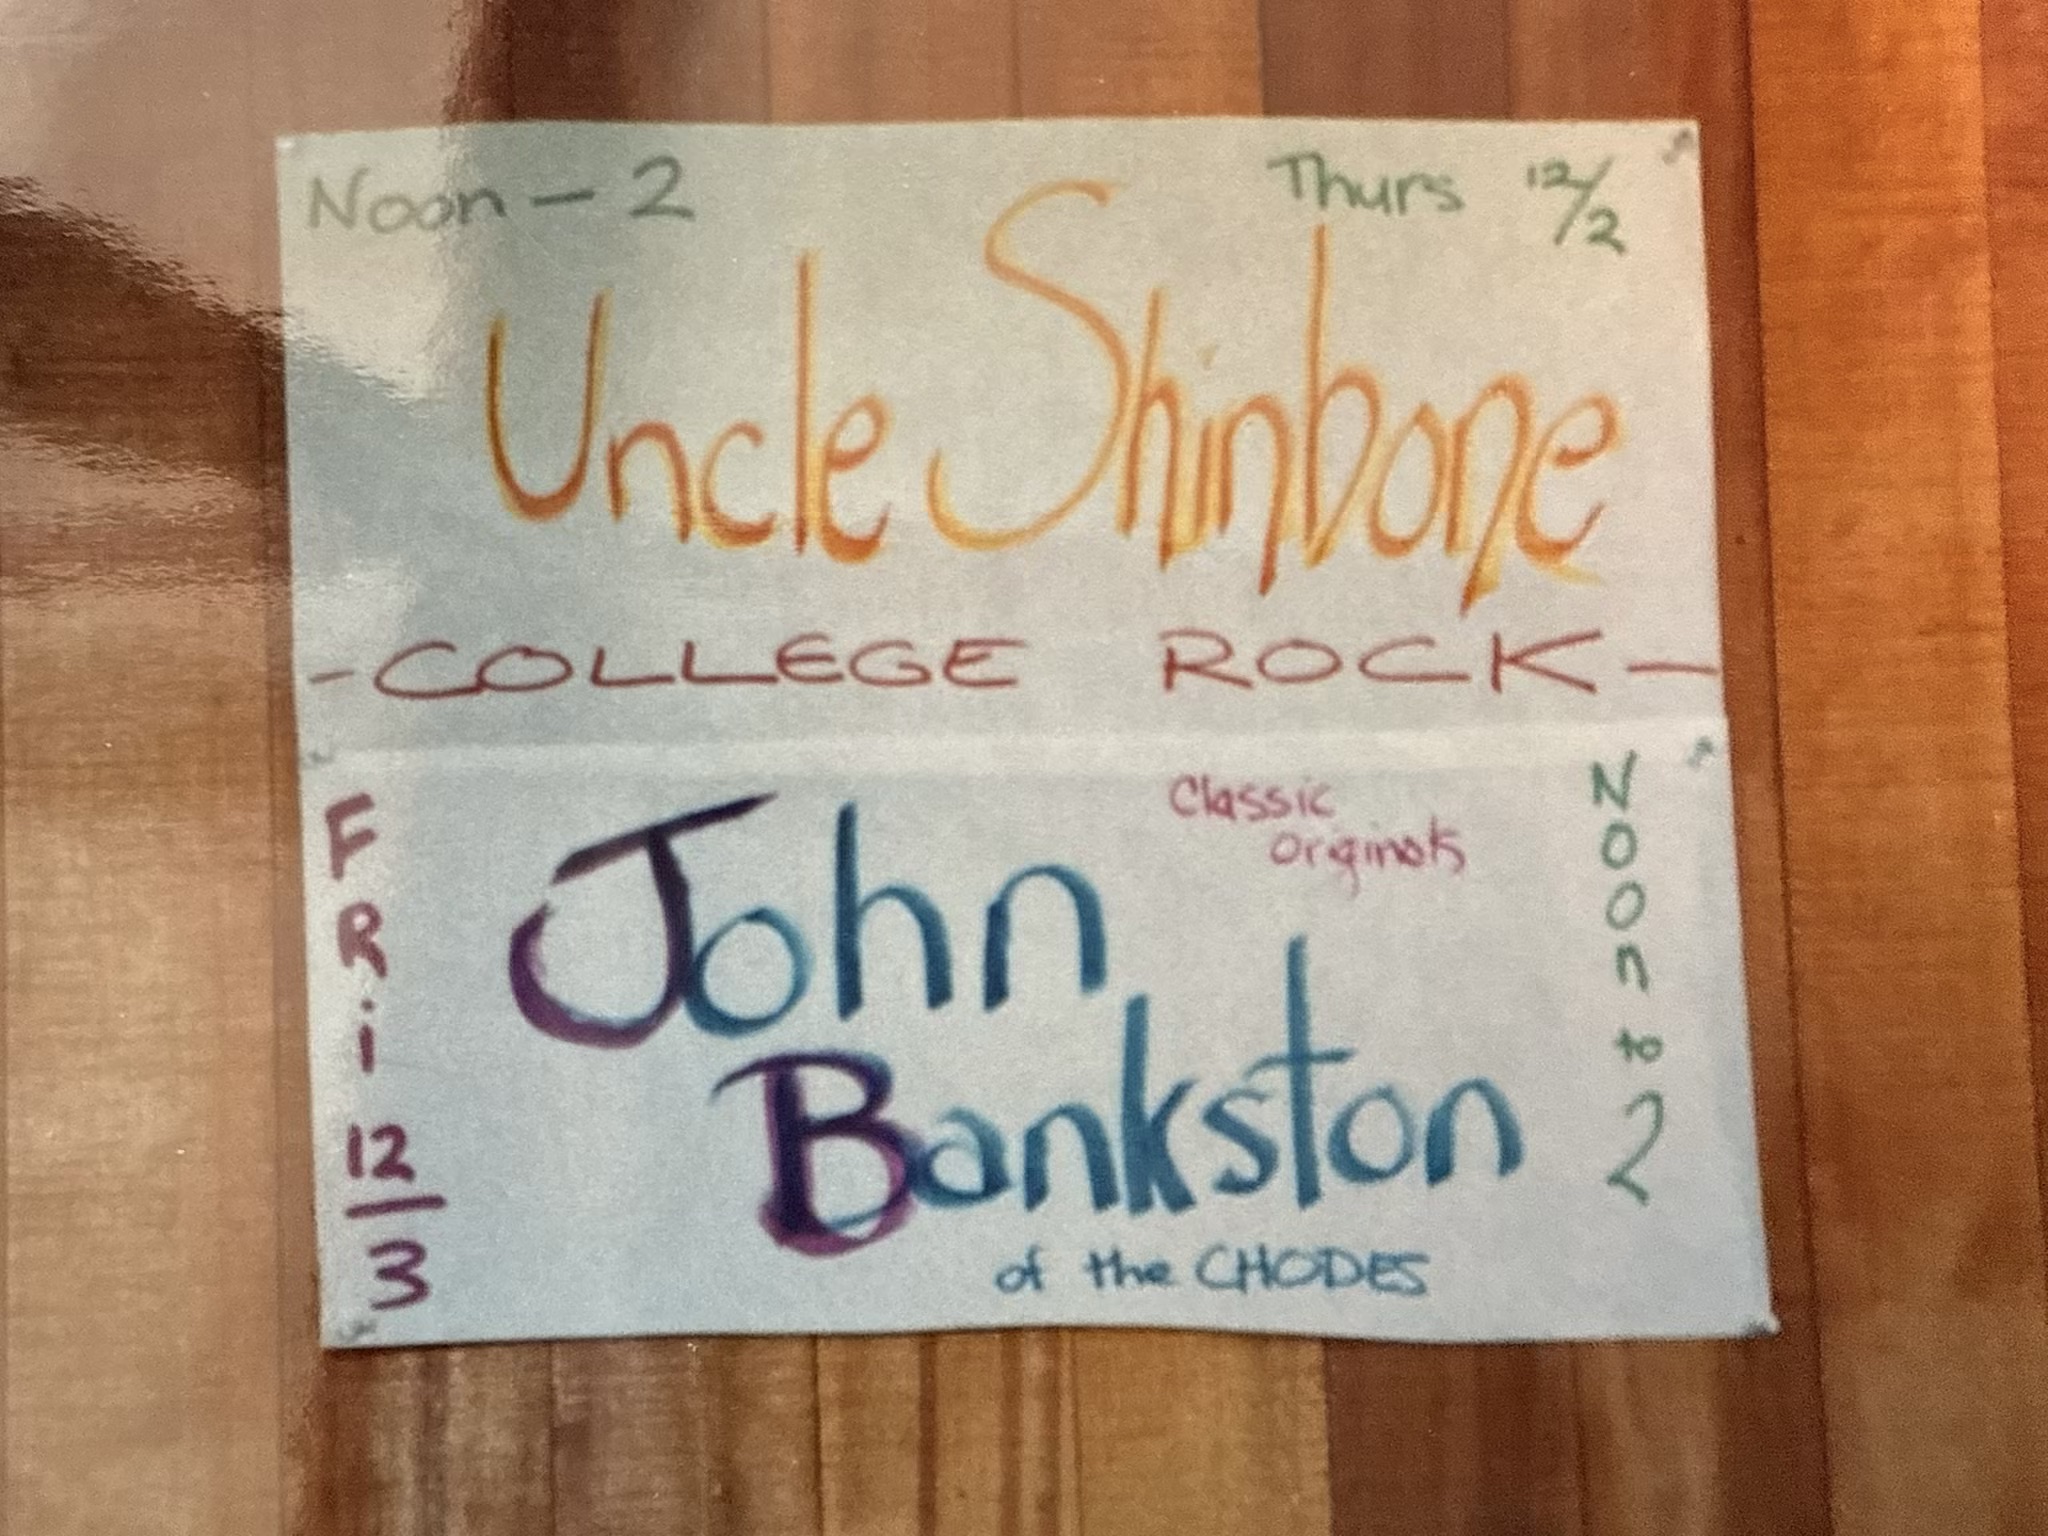 Noon - 2
Thurs 12/2
Uncle Shinbone
- COLLEGE ROCK -
FRi 12/3
Classic
Originals
John
Bankston
of the CHODES
Noon to 2